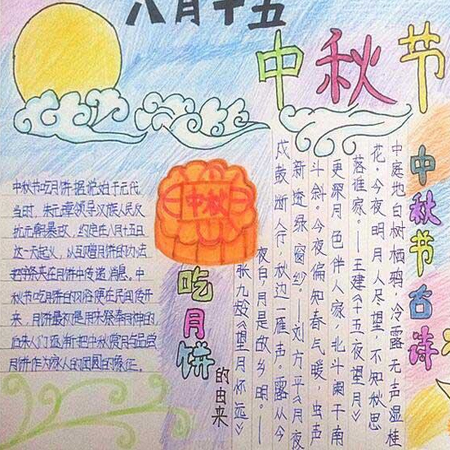 八月十五
中秋节
中秋节吃月饼据说始于元代
当时,朱元璋领导汉族人民反
抗元朝暴政,约定在八月十五日
这一天起义,以互赠月饼的办法
把字条夹在月饼中传递消息。中
秋节吃月饼的习俗便在民间传开
来。月饼最初是用来祭奉月神的
后来人们逐渐把中秋赏月与品尝
月饼作为家人的团圆的象征。
中秋
吃月饼
的由来
中秋节古诗
中庭地白树栖鸦,冷露无声湿桂
花。今夜明月人尽望,不知秋思
落谁家。——王建《十五夜望月》
更深月色伴人家,北斗阑干南
斗斜。今夜偏知春气暖,虫声
新透绿窗纱。——刘方平《月夜
戍鼓断人行,秋边一雁声。露从今
夜白,月是故乡明。——
张九龄《望月怀远》